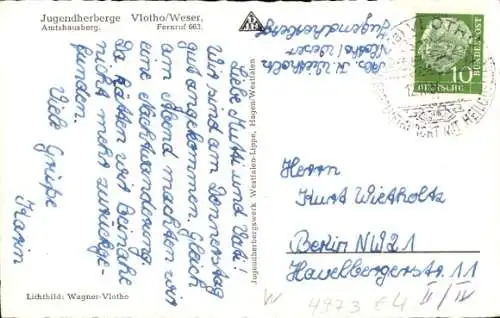 Jugendherberge Vlotho/Weser,
Amtshausberg. Fernruf 663.
Liebe Mutti und Vati!
Wir sind am Donnerstag
gut angekommen. Gleich
am Abend machten wir
eine Nachtwanderung.
Da hätten wir Beinahe
nicht mehr zurückge-
funden.
Viele Grüße
Karin
Lichtbild: Wagner-Vlotho
Jugendherbergswerk Westfalen-Lippe, Hagen/Westfalen
Abs. K. Wietholtz
Vlotho/Weser
Jugendherberge
10
DEUTSCHE
BUNDESPOST
VLOTHO
Herrn
Kurt Wietholtz
Berlin NW 21
Havelbergerstr. 11
II/IV